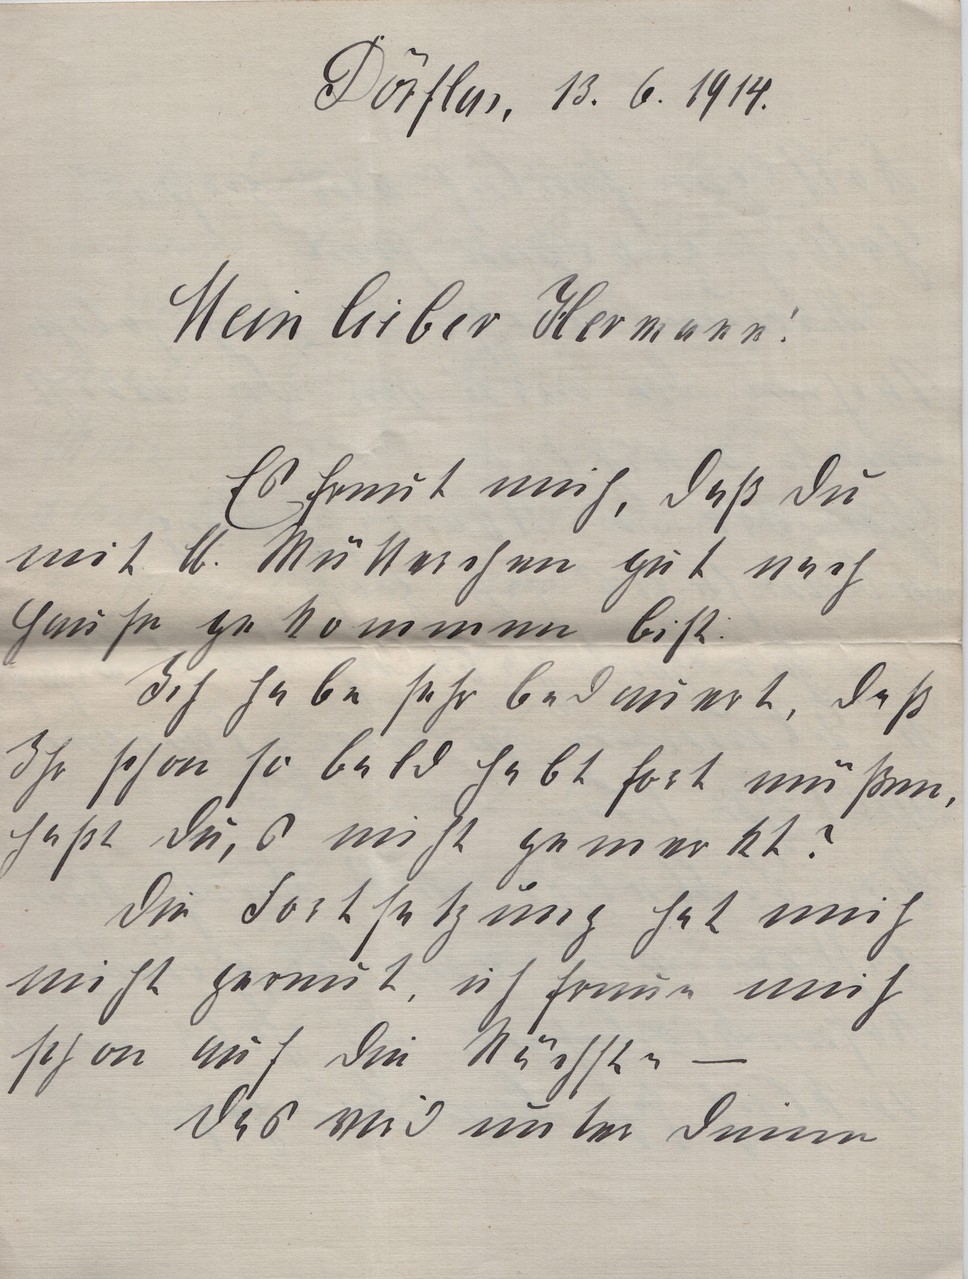 Dörflas, 13. 6. 1914.
Mein lieber Hermann!
Es freut mich, daß Du
mit lb. Mütterchen gut nach
Hause gekommen bist.
Ich habe sehr bedauert, daß
Ihr schon so bald habt fort müßen,
haßt Du,s nicht gemerkt?
Die Fortsetzung hat mich
nicht gereut, ich freue mich
schon auf die Nächste —
Das unter Deinen